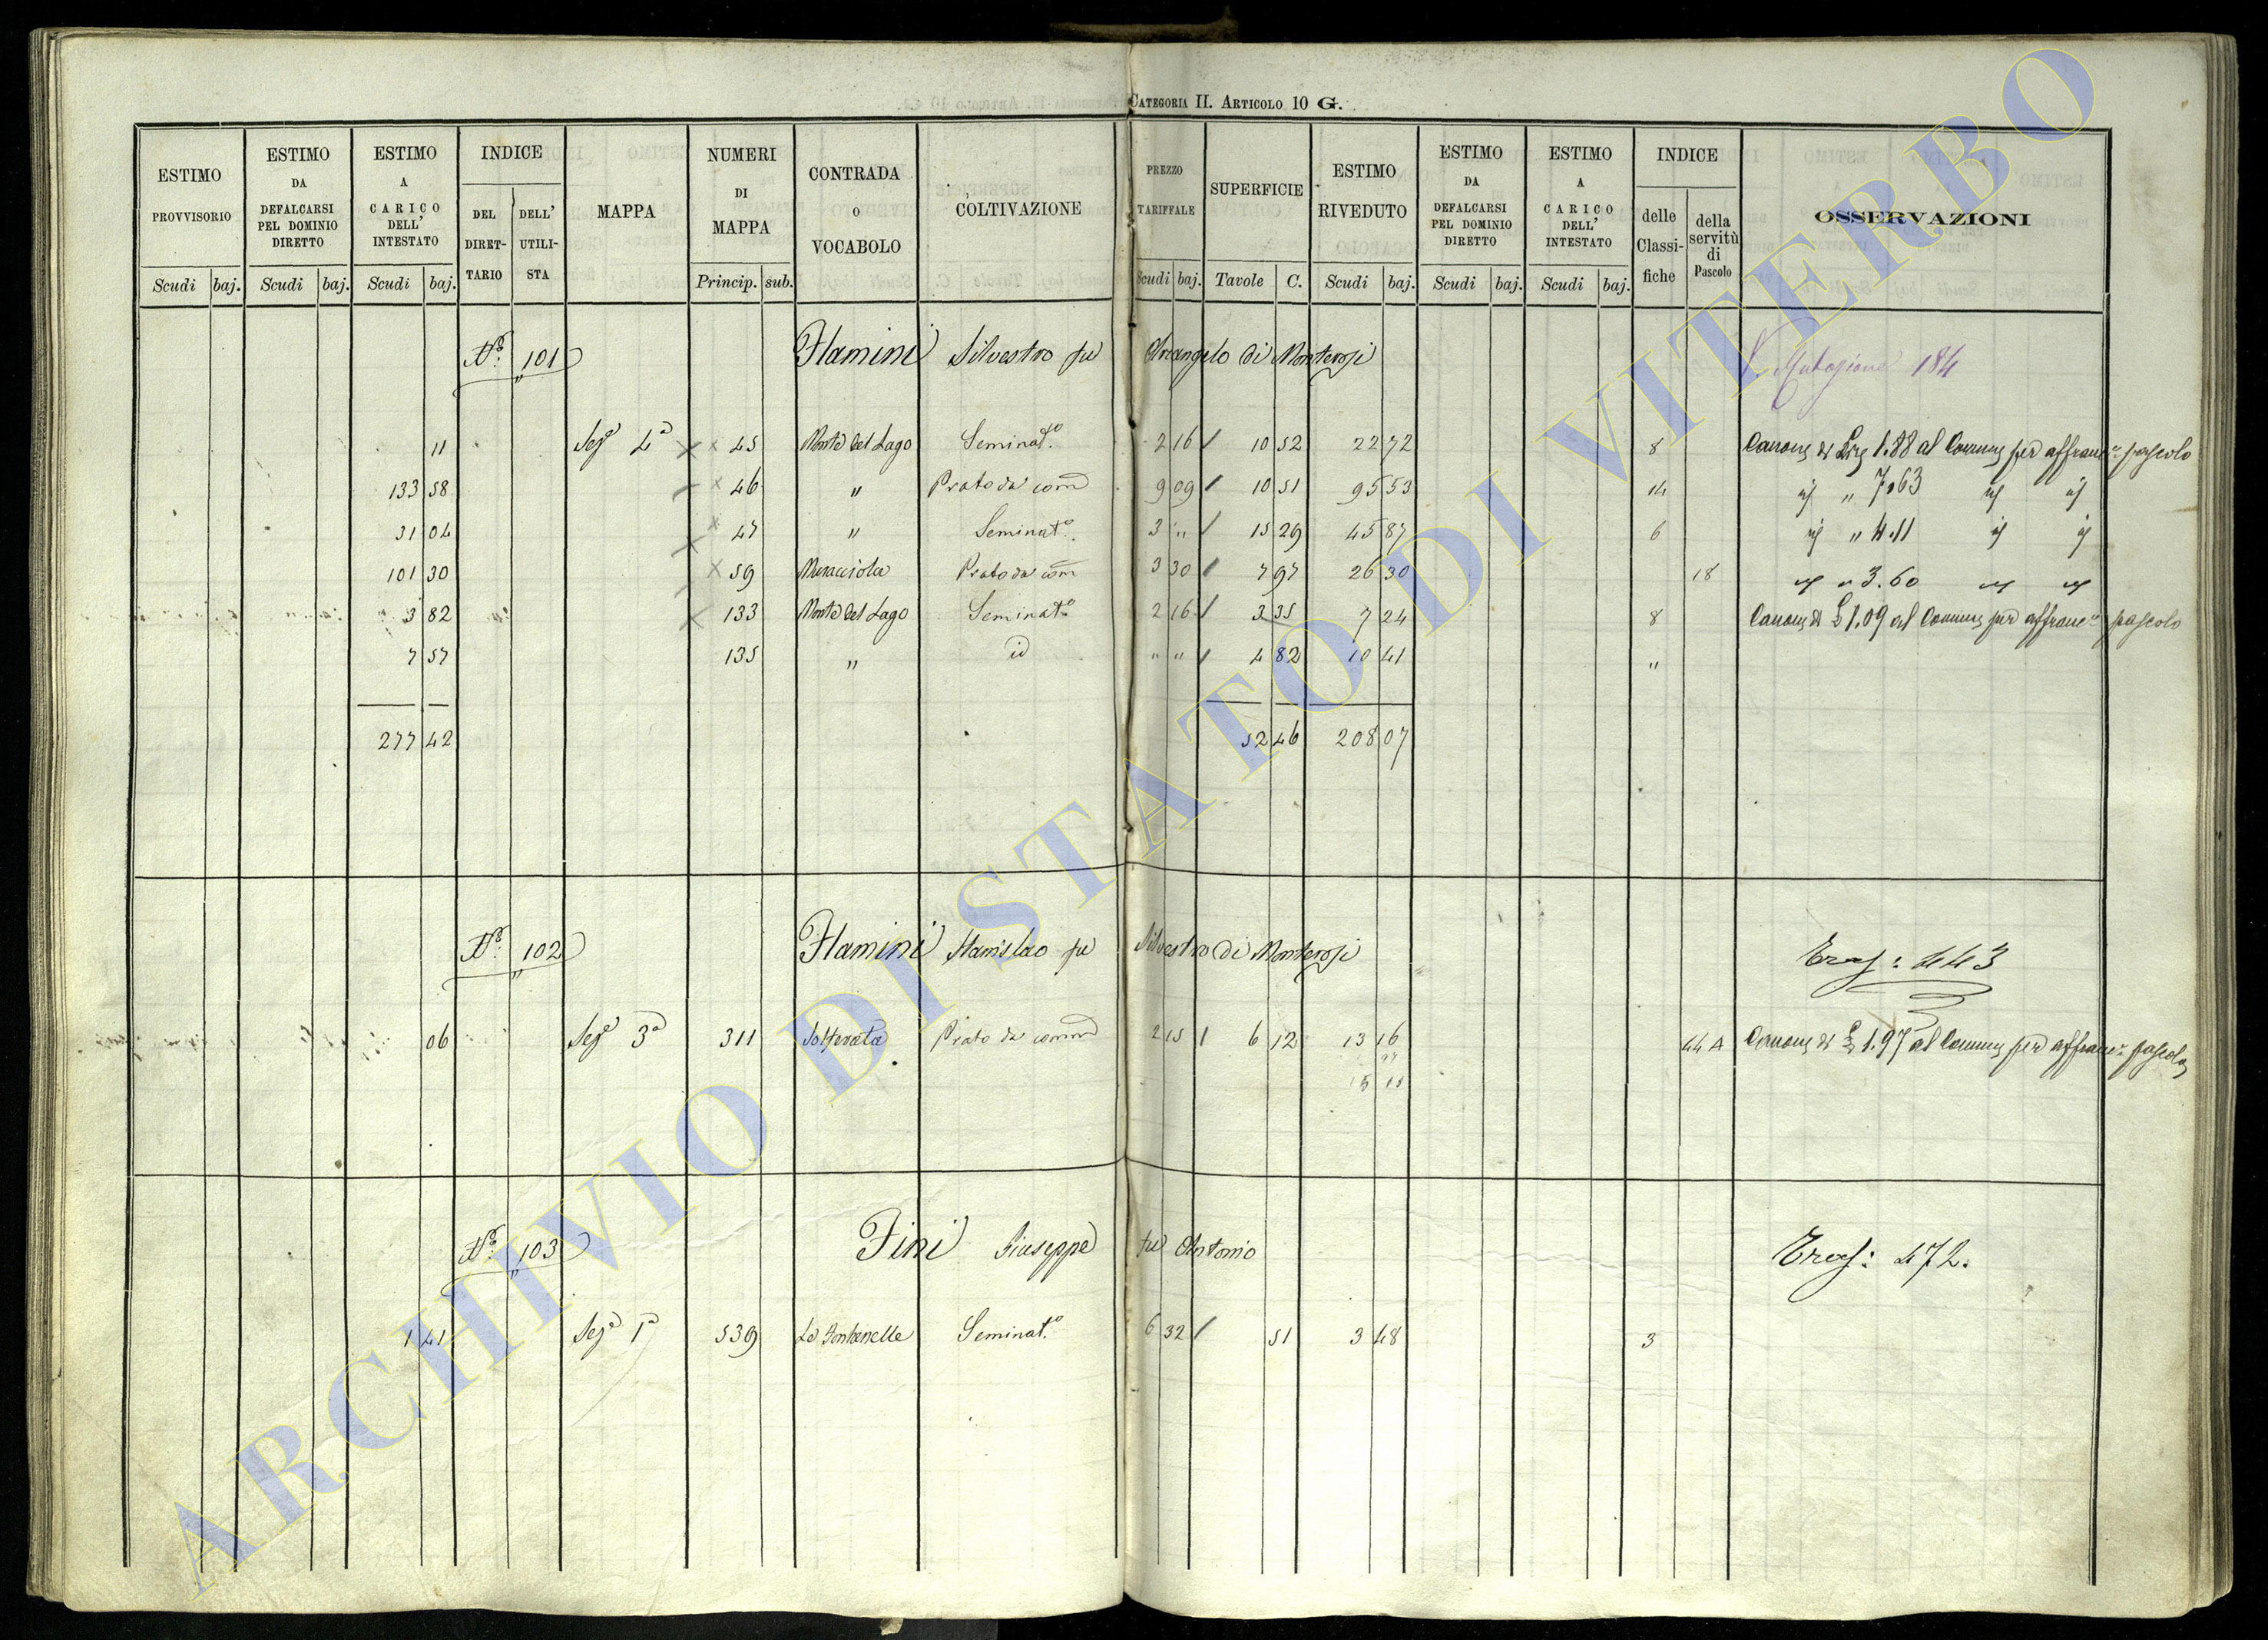 CATEGORIA II. ARTICOLO 10 G.
ESTIMO PROVVISORIO Scudi baj.
ESTIMO DA DEFALCARSI PEL DOMINIO DIRETTO Scudi baj.
ESTIMO A CARICO DELL' INTESTATO Scudi baj.
INDICE DEL DIRETTARIO DELL' UTILISTA
MAPPA
NUMERI DI MAPPA Princip. sub.
CONTRADA O VOCABOLO
COLTIVAZIONE
PREZZO TARIFFALE Scudi baj.
SUPERFICIE Tavole C.
ESTIMO RIVEDUTO Scudi baj.
ESTIMO DA DEFALCARSI PEL DOMINIO DIRETTO Scudi baj.
ESTIMO A CARICO DELL' INTESTATO Scudi baj.
INDICE delle Classifiche della servitù di Pascolo
OSSERVAZIONI
No. 101 Flamini Silvestro fu Arcangelo di Monterosi Mutazione 184
11 Seze 4a 45 Monte del Lago Seminato. 2 16 10 52 22 72 8 Canone di Lire 1.88 al Comune per affrancne pascolo
133 58 46 " Prato da com 9 09 10 51 95 53 14 id " 7.63 id id
31 04 47 " Seminato. 3 " 15 29 45 87 6 id " 4.11 id id
101 30 59 Muracciola Prato da com 3 30 7 97 26 30 18 id " 3.60 id id
3 82 133 Monte del Lago Seminato 2 16 3 35 7 24 8 Canone di £ 1.09 al Comune per affrancne pascolo
7 57 135 " id " " 4 82 10 41 "
277 42 52 46 208 07
No. 102 Flamini Stanislao fu Silvestro di Monterosi Tras: 443
06 Seze 3a 311 Solferata Prato da comm 2 15 6 12 13 16 44 A Canone di £ 1.97 al Comune per affrancne pascolo
No. 103 Fini Giuseppe fu Antonio Tras: 472.
1 41 Seze 1a 539 Le Fontanelle Seminato. 6 32 51 3 48 3
ARCHIVIO DI STATO DI VITERBO